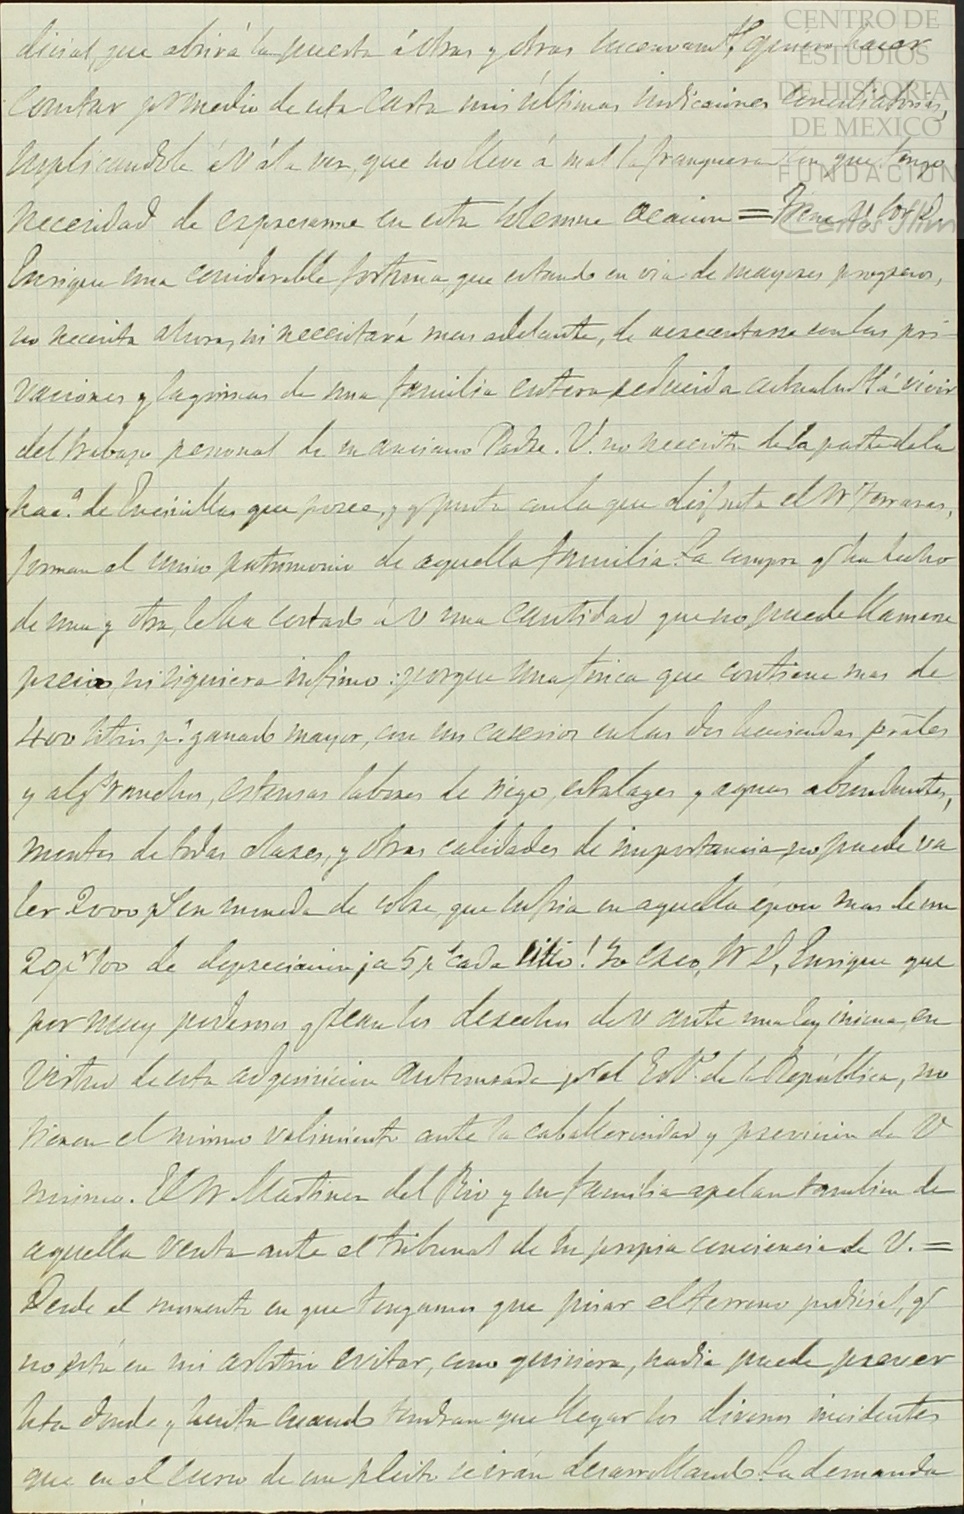 dicial, que abrirá la puerta á otras y otras sucesivamte, quiero hacer
constar por medio de esta carta mis últimas indicaciones conciliatorias,
suplicandole á V á la vez, que no lleve á mal la franqueza con que tengo
necesidad de expresarme en esta solemne ocacion = Tiene V. Sor D.
Enrique una considerable fortuna, que estando en via de mayores progresos,
no necesita ahora, ni necesitará mas adelante, de acrecentarse con las pri-
vaciones y lagrimas de una familia entera reducida actualmte á vivir
del trabajo personal de su anciano Padre. V. no necesita de la parte de la
haca. de Encinillas que posee, y q junta con la que disfruta el Sr Terrazas,
forman el unico patrimonio de aquella familia. La compra q ha hecho
de una y otra, le ha costado á V una cantidad que no puede llamarse
precio ni siquiera infimo: porque una finca que contiene mas de
400 sitios pa. ganado mayor, con sus caserios en las dos haciendas prales
y algs ranchos, estensas labores de riego, estalages y aguas abundantes,
montes de todas clases, y otras calidades de importancia no puede va
ler 2000 ps en moneda de cobre, que sufria en aquella época mas de un
20 pr 100 de depreciacion ¡a 5 ps cada sitio! Yo creo, Sr D. Enrique que
por muy poderosos q sean los derechos de V ante una ley inicua, en
virtud de esta adquisicion autorizada por el Eo. de la República, no
tienen el mismo valimiento ante la caballerosidad y prevision de V
mismo. El Sr Martinez del Rio y su familia apelan tambien de
aquella venta ante el tribunal de la propia conciencia de V. =
Desde el momento en que tengamos que pisar el terreno judicial, q
no está en mi arbitrio evitar, como quisiera, nadie puede preveer
hta donde y hasta cuando tendran que llegar los diversos incidentes
que en el curso de un pleito se irán desarrollando. La demanda
CENTRO DE
ESTUDIOS
DE HISTORIA
DE MEXICO
FUNDACIÓN
Carlos Slim